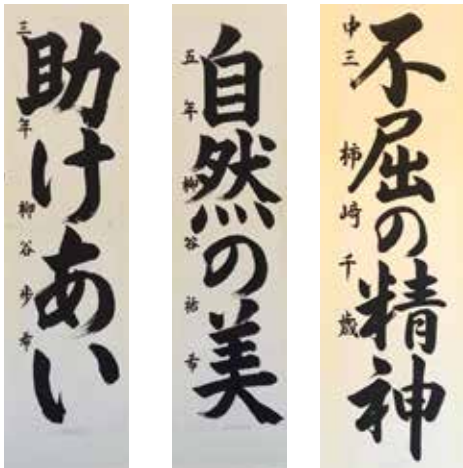 助けあい
三年 柳谷歩希
自然の美
五年 柳谷祐希
不屈の精神
中三 柿崎千歳